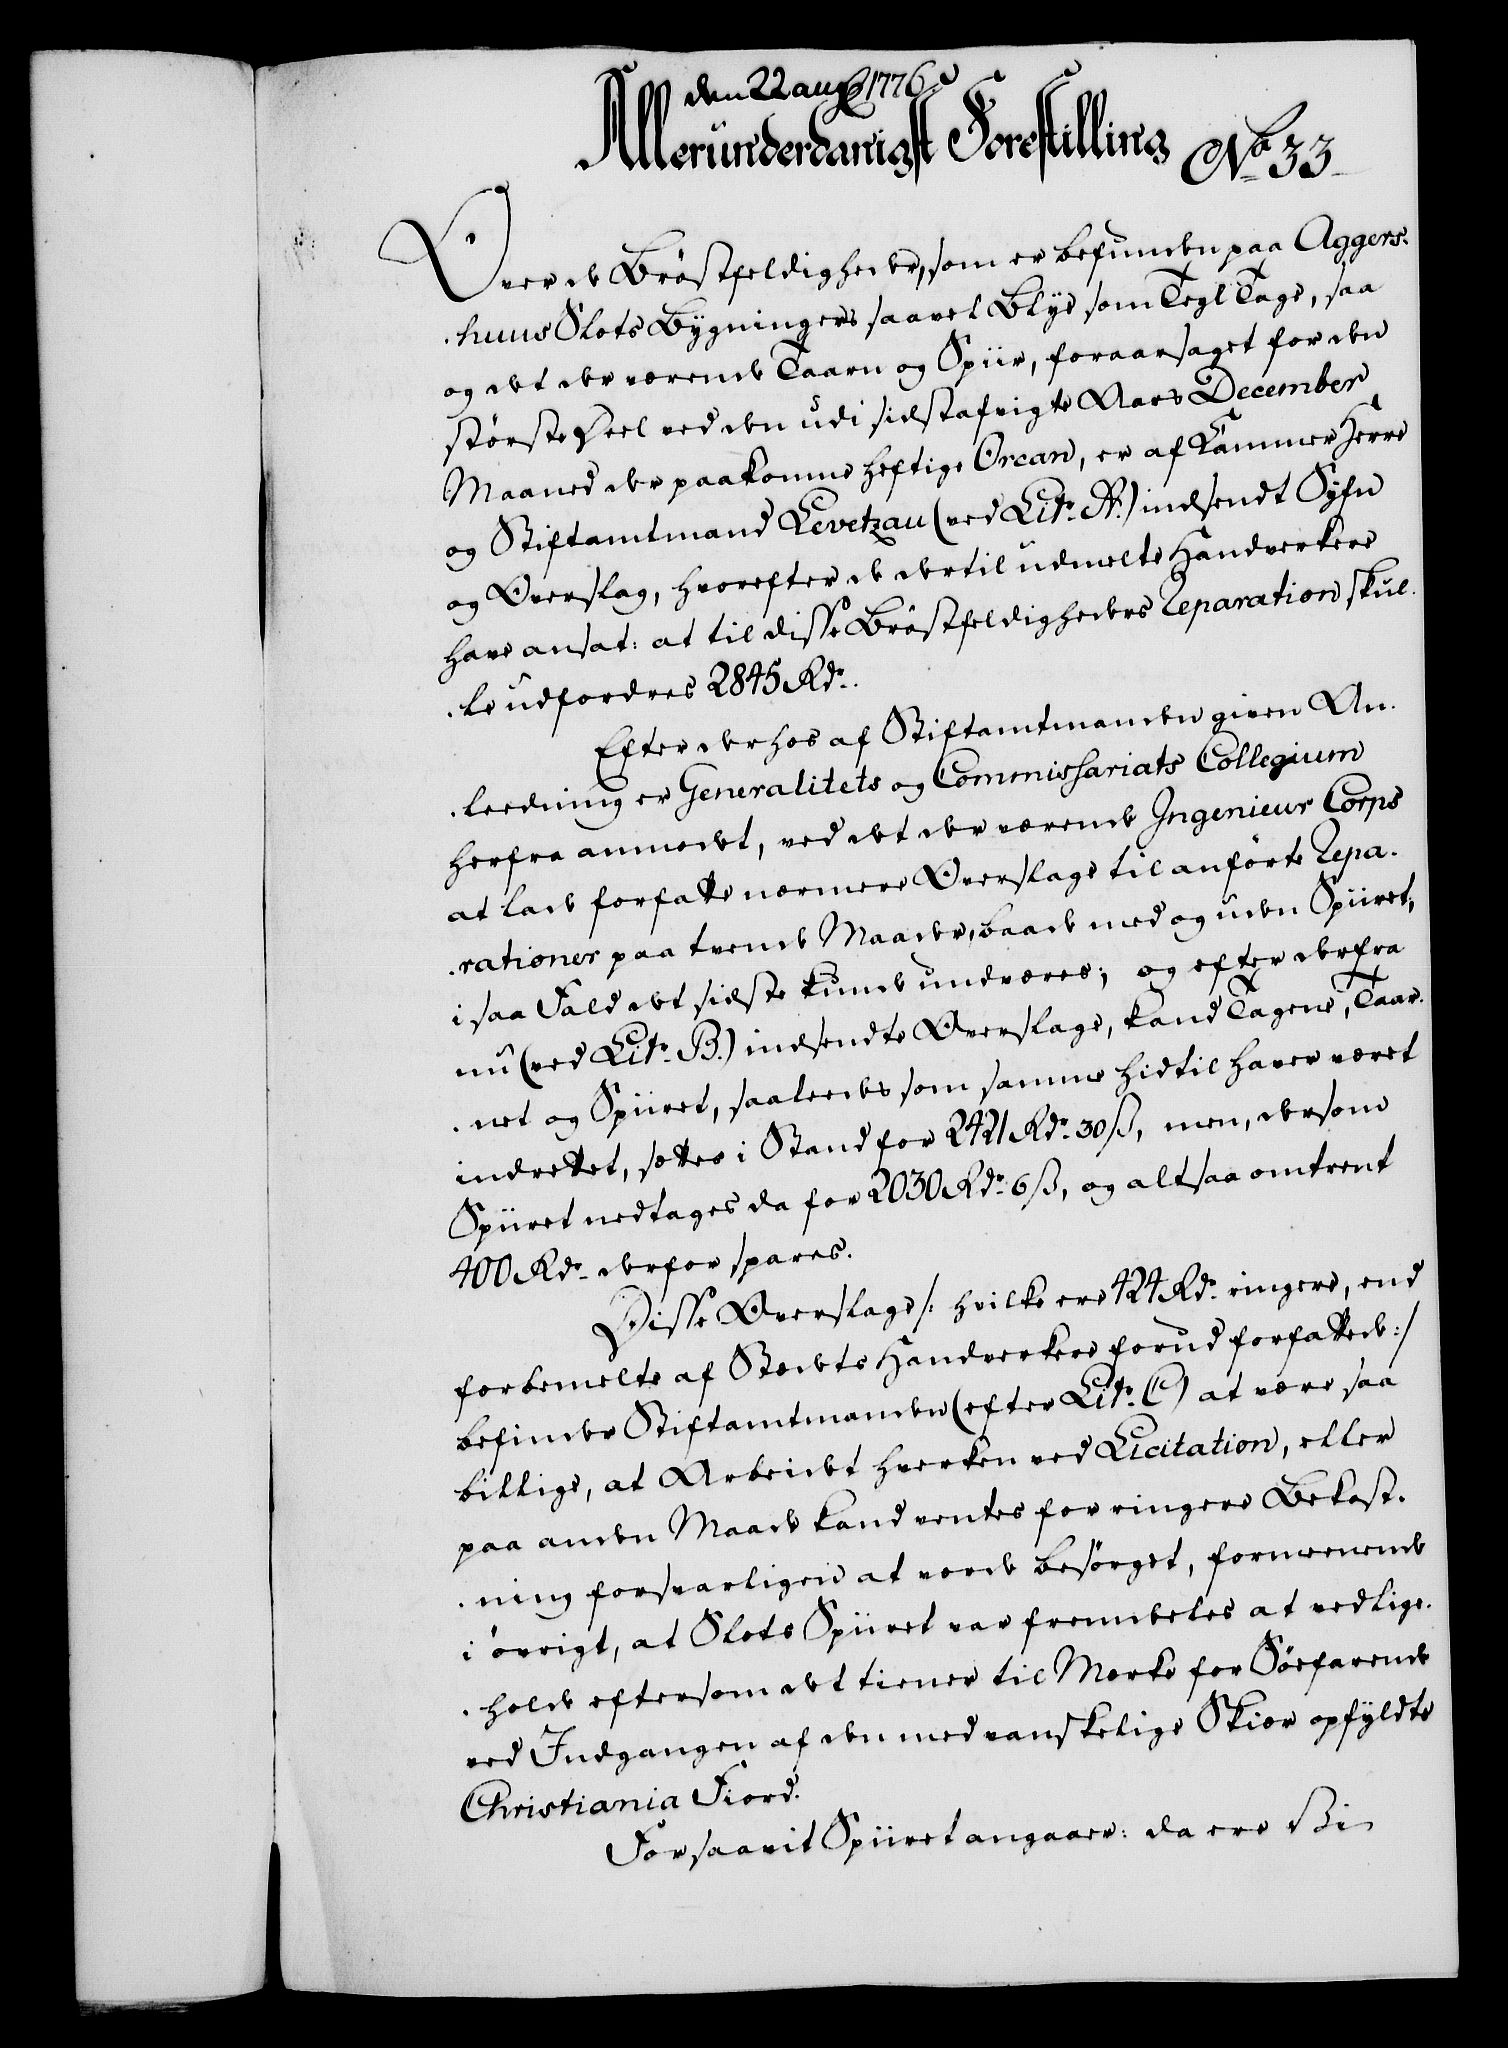 den 22 aug 1776
Allerunderdanigst Forestilling No 33
Over de Bröstfeldigheder, som er befunden paa Aggers-
-huus Slots Bygningers saavel Blye som Tegl Tage, saa
og det der værende Taarn og Spiir, foraarsaget for den
störste Deel ved den udi sidstafvigte Aars December
Maaned der paakomne heftige Orcan, er af Kammer Herre
og Stiftamtmand Levetzau (ved Litr. A.) indsendt Syfn
og Overslag, hvorefter de dertil udmelte Handverkere
have ansat: at til disse Bröstfeldigheders Reparation skul-
-le udfordres 2845 Rdr.
Efter derhos af Stiftamtmanden given An-
-leedning er Generalitets og Commissariats Collegium
herfra anmodet, ved det der værende Ingenieur Corps
at lade forfatte nærmere Overslage til anförte Repa-
-rationer paa tvende Maader, baade med og uden Spiiret,
i saa Fald det sidste kunde undværes; og efter derfra
nu (ved Litr. B.) indsendte Overslage, kand Tagene, Taar-
-net og Spiiret, saaledes som samme hidtil haver været
indrettet, sættes i Stand for 2421 Rdr. 30 ß, men, dersom
Spiiret nedtages da for 2030 Rdr. 6 ß, og altsaa omtrent
400 Rdr. derfor spares.
Disse Overslage /: hvilke ere 424 Rdr. ringere, end
forbemelte af Stedets Handverkere forud forfattede :/
befinder Stiftamtmanden (efter Litr. C) at være saa
billige, at Arbeidet hverken ved Licitation, eller
paa anden Maade kand ventes for ringere Bekost-
-ning forsvarligen at vorde besörget, formeenende
i övrigt, at Slots Spiiret var fremdeles at vedlige-
-holde eftersom det tiener til Mærke for Söefarende
ved Indgangen af den med vanskelige Skiær opfyldte
Christiania Fiord.
For saavit Spiiret angaaer: da ere Bi-